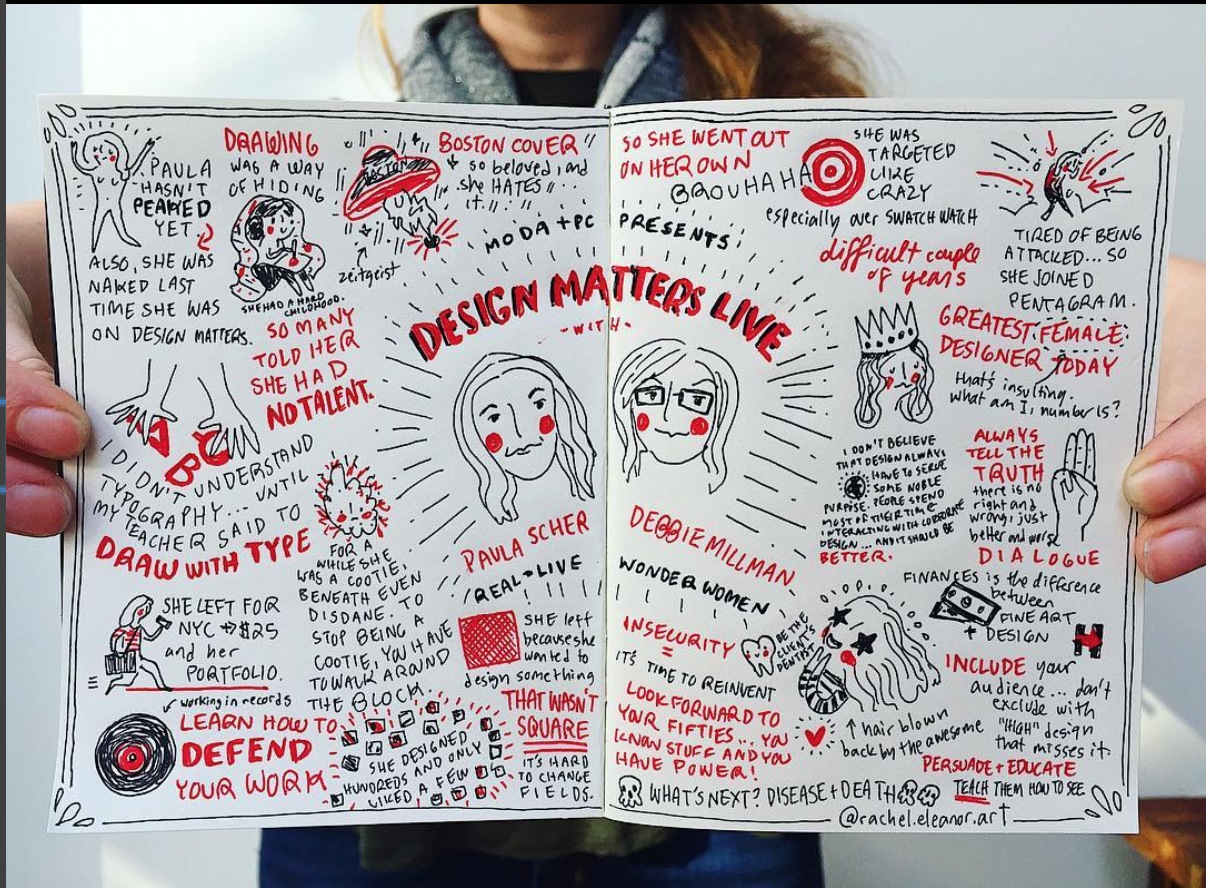 PAULA
HASN'T
PEAKED
YET.
ALSO, SHE WAS
NAKED LAST
TIME SHE WAS
ON DESIGN MATTERS.
DRAWING
WAS A WAY
OF HIDING
SHE HAD A HARD
CHILDHOOD.
SO MANY
TOLD HER
SHE HAD
NO TALENT.
BOSTON
BOSTON COVER
so beloved, and
she HATES
it.
zeitgeist
A
B
C
I DIDN'T UNDERSTAND
TYPOGRAPHY... UNTIL
MY TEACHER SAID TO
DRAW WITH TYPE
FOR A
WHILE SHE
WAS A COOTIE,
BENEATH EVEN
DISDANE. TO
STOP BEING A
COOTIE, YOU HAVE
TO WALK AROUND
THE BLOCK.
SHE LEFT FOR
NYC → $25
and her
PORTFOLIO.
working in records
LEARN HOW TO
DEFEND
YOUR WORK
SHE DESIGNED
HUNDREDS AND ONLY
LIKED A FEW
SHE left
because she
wanted to
design something
THAT WASN'T
SQUARE
IT'S HARD
TO CHANGE
FIELDS.
MODA + PC PRESENTS:
DESIGN MATTERS LIVE
- WITH -
PAULA SCHER
DEBBIE MILLMAN
REAL-LIVE
WONDER WOMEN
SO SHE WENT OUT
ON HER OWN
BROUHAHA
SHE WAS
TARGETED
LIKE
CRAZY
especially over SWATCH WATCH
difficult couple
of years
TIRED OF BEING
ATTACKED... SO
SHE JOINED
PENTAGRAM.
GREATEST FEMALE
DESIGNER TODAY
that's insulting.
what am I, number 15?
I DON'T BELIEVE
THAT DESIGN ALWAYS
HAVE TO SERVE
SOME NOBLE
PURPOSE. PEOPLE SPEND
MOST OF THEIR TIME
INTERACTING WITH CORPORATE
DESIGN... AND IT SHOULD BE
BETTER.
ALWAYS
TELL THE
TRUTH
there is no
right and
wrong; just
better and worse
DIALOGUE
INSECURITY
=
IT'S TIME TO REINVENT
BE THE
CLIENT'S
DENTIST
LOOK FORWARD TO
YOUR FIFTIES... YOU
KNOW STUFF AND YOU
HAVE POWER!
↑ hair blown
back by the awesome
FINANCES is the difference
between
FINE ART
+ DESIGN
INCLUDE your
audience... don't
exclude with
"HIGH" design
that misses it.
PERSUADE + EDUCATE
TEACH THEM HOW TO SEE
WHAT'S NEXT? DISEASE + DEATH
@rachel.eleanor.art